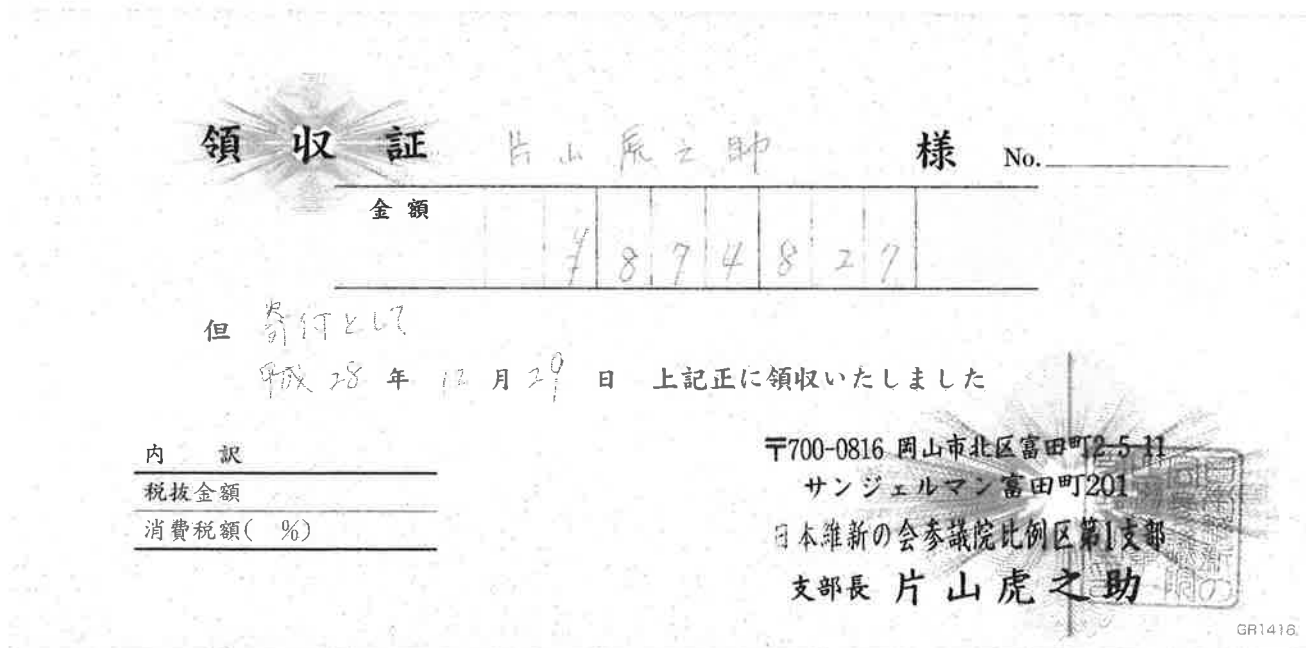 領 収 証 片山虎之助 様 No.
金額
¥874827
但 寄付として
平成 28 年 12 月 29 日 上記正に領収いたしました
内 訳
税抜金額
消費税額( %)
〒700-0816 岡山市北区富田町2-5-11
サンジェルマン富田町201
日本維新の会参議院比例区第1支部
支部長 片山虎之助
GR1416